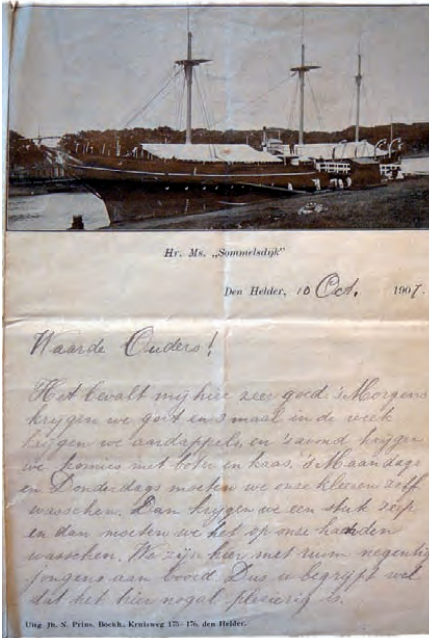 Hr. Ms. „Sommelsdijk"
Den Helder, 10 Oct. 1907.
Waarde Ouders!
Het bevalt mij hier zeer goed 's Morgens
krijgen we gort en 3 maal in de week
krijgen we aardappels, en 's avond krijgen
we komies met boter en kaas. 's Maandags
en Donderdags moeten we onze kleeren zelf
wasschen. Dan krijgen we een stuk zeep
en dan moeten we het op onze handen
wasschen. We zijn hier met ruim negentig
jongens aan boord. Dus u begrijpt wel
dat het hier nogal plesierig is.
Uitg. Jb. N. Prins, Boekh., Kruisweg 175-176, den Helder.